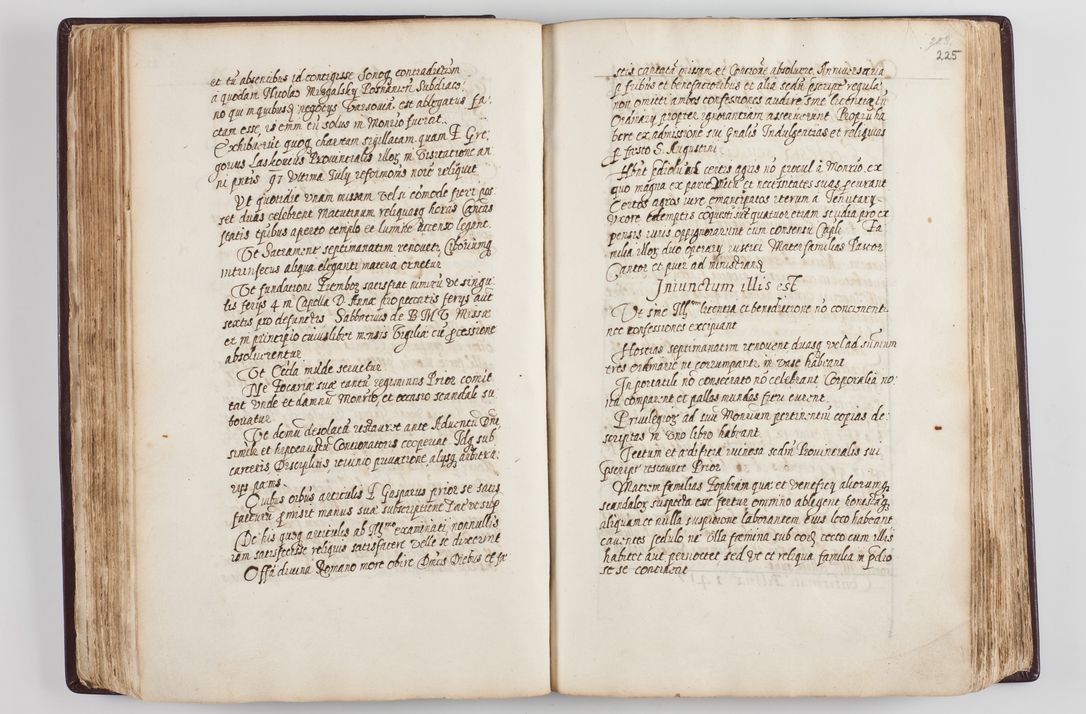 et tũ absentibus id contigisse Sonoq contradictum
a quodam Nicolao Posnanien Subdiaco:
no qui in quibusdã negocys Varsouiã est ablegatus fa:
ctam esse, is enim tũ solus in Monrio fuerat.
Exhibuerũt quoq chartam sigillatam quam F. Gre
gorius Laskouius Prouincialis illoꝝ in Visitatione an
ni pntis 97 Vltima July reformonis nore reliquit
Vt quotidie vnam missam vel si cõmode fieri pos
set duas celebrent Matutinam reliquasq horas Cano:
statis tpibus aperto templo et lumine accenso legant.
Vt Sacramentũ septimanatim renouetr Ciboriumq
intrinsecus aliqua eleganti materia ornetur
Vt fundationi satisfiat nimirũ vt singu
lis ferys 4 in Capella D. Annæ pro peccatis ferys aũt
sextis pro defunctis Sabbatinis de B M V Missæ
et in principio cuiuslibet mensis Vigiliæ cũ pcessione
absoluerentur
Vt Cella munde seruetur
Ne focariæ suæ tantũ regiminis Prior comit
tat vnde et damnũ Monrio, et occasio scandali su
boriatur
Vt domũ desolatã restauret ante Aduentũ Dni
simile et hypocaustũ Concionatoris cooperint Idq sub
carceris Disciplinis ieiunio priuatione alysq arbitra:
rys pænis.
Quibus orbus articulis F. Gasparus prior se satis
facturũ pmisit manus suæ subscriptione
De his quoq articulis ab Illmo examinati, nonnullis
iam satisfecisse reliquis satisfacere velle se dixerunt
Offã diuina Romano more obire Dnicis Diebus et fe
225
stis cantatã missam et Concionẽ absoluere Anniuersaria
p frũbus et benefactoribus et alia sedm pscript regulæ
non omitti ambos confessiones audire sine licentia tñ
Ordinary propter ignorantiam asseruerunt Propriũ ha
bere ex admissione sui Gnalis Indulgentias et reliquias
p festo S. Augustini
Hñt prædiolũ cũ certis agris nõ procul â Monrio, ex
quo magna ex parte victũ et necessitates suas pcurant
Certos agros iure emancipatos iterum a Tenutary
vxore redemptis quatuor etiam scudia pro ex
pensis iuris oppignorarunt cum consensu Capli Fa
milia illoꝝ duo operary rusetci Materfamilias Pastor
Cantor et puer ad ministrandũ
Iniunctum illis est
Vt sine Illmi licentia et benedictione nõ concionent
nec confessiones excipiant
Hostias septimanatim renouent duasq vel ad sumum
tres ordinarie ne corrumpantr in vase habeant
In portatili nõ consecrato nõ celebrent Corporalia no:
ua comparent et pallas mundas fieri curent.
Priuilegioꝝ ad suũ Monrium pertinentiũ copias de:
scriptas in vno libro habeant
Tectum et ædificia ruinosa sedm Prouincialis sui
pscript restauret Prior
Matrem familias Sophiam quæ et venefici aliorumq
scandaloꝝ suspecta esse fertur omnino ablegent honestãq
aliquam et nulla suspicione laborantem eius loco habeant
cauentes sedulo ne vlla fœmina sub eodẽ tecto cum illis
habitet aut pernoctet, sed vt et reliqua familia in pdio
se se contineat